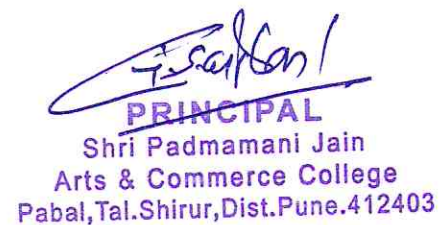 PRINCIPAL
Shri Padmamani Jain
Arts & Commerce College
Pabal,Tal.Shirur,Dist.Pune.412403